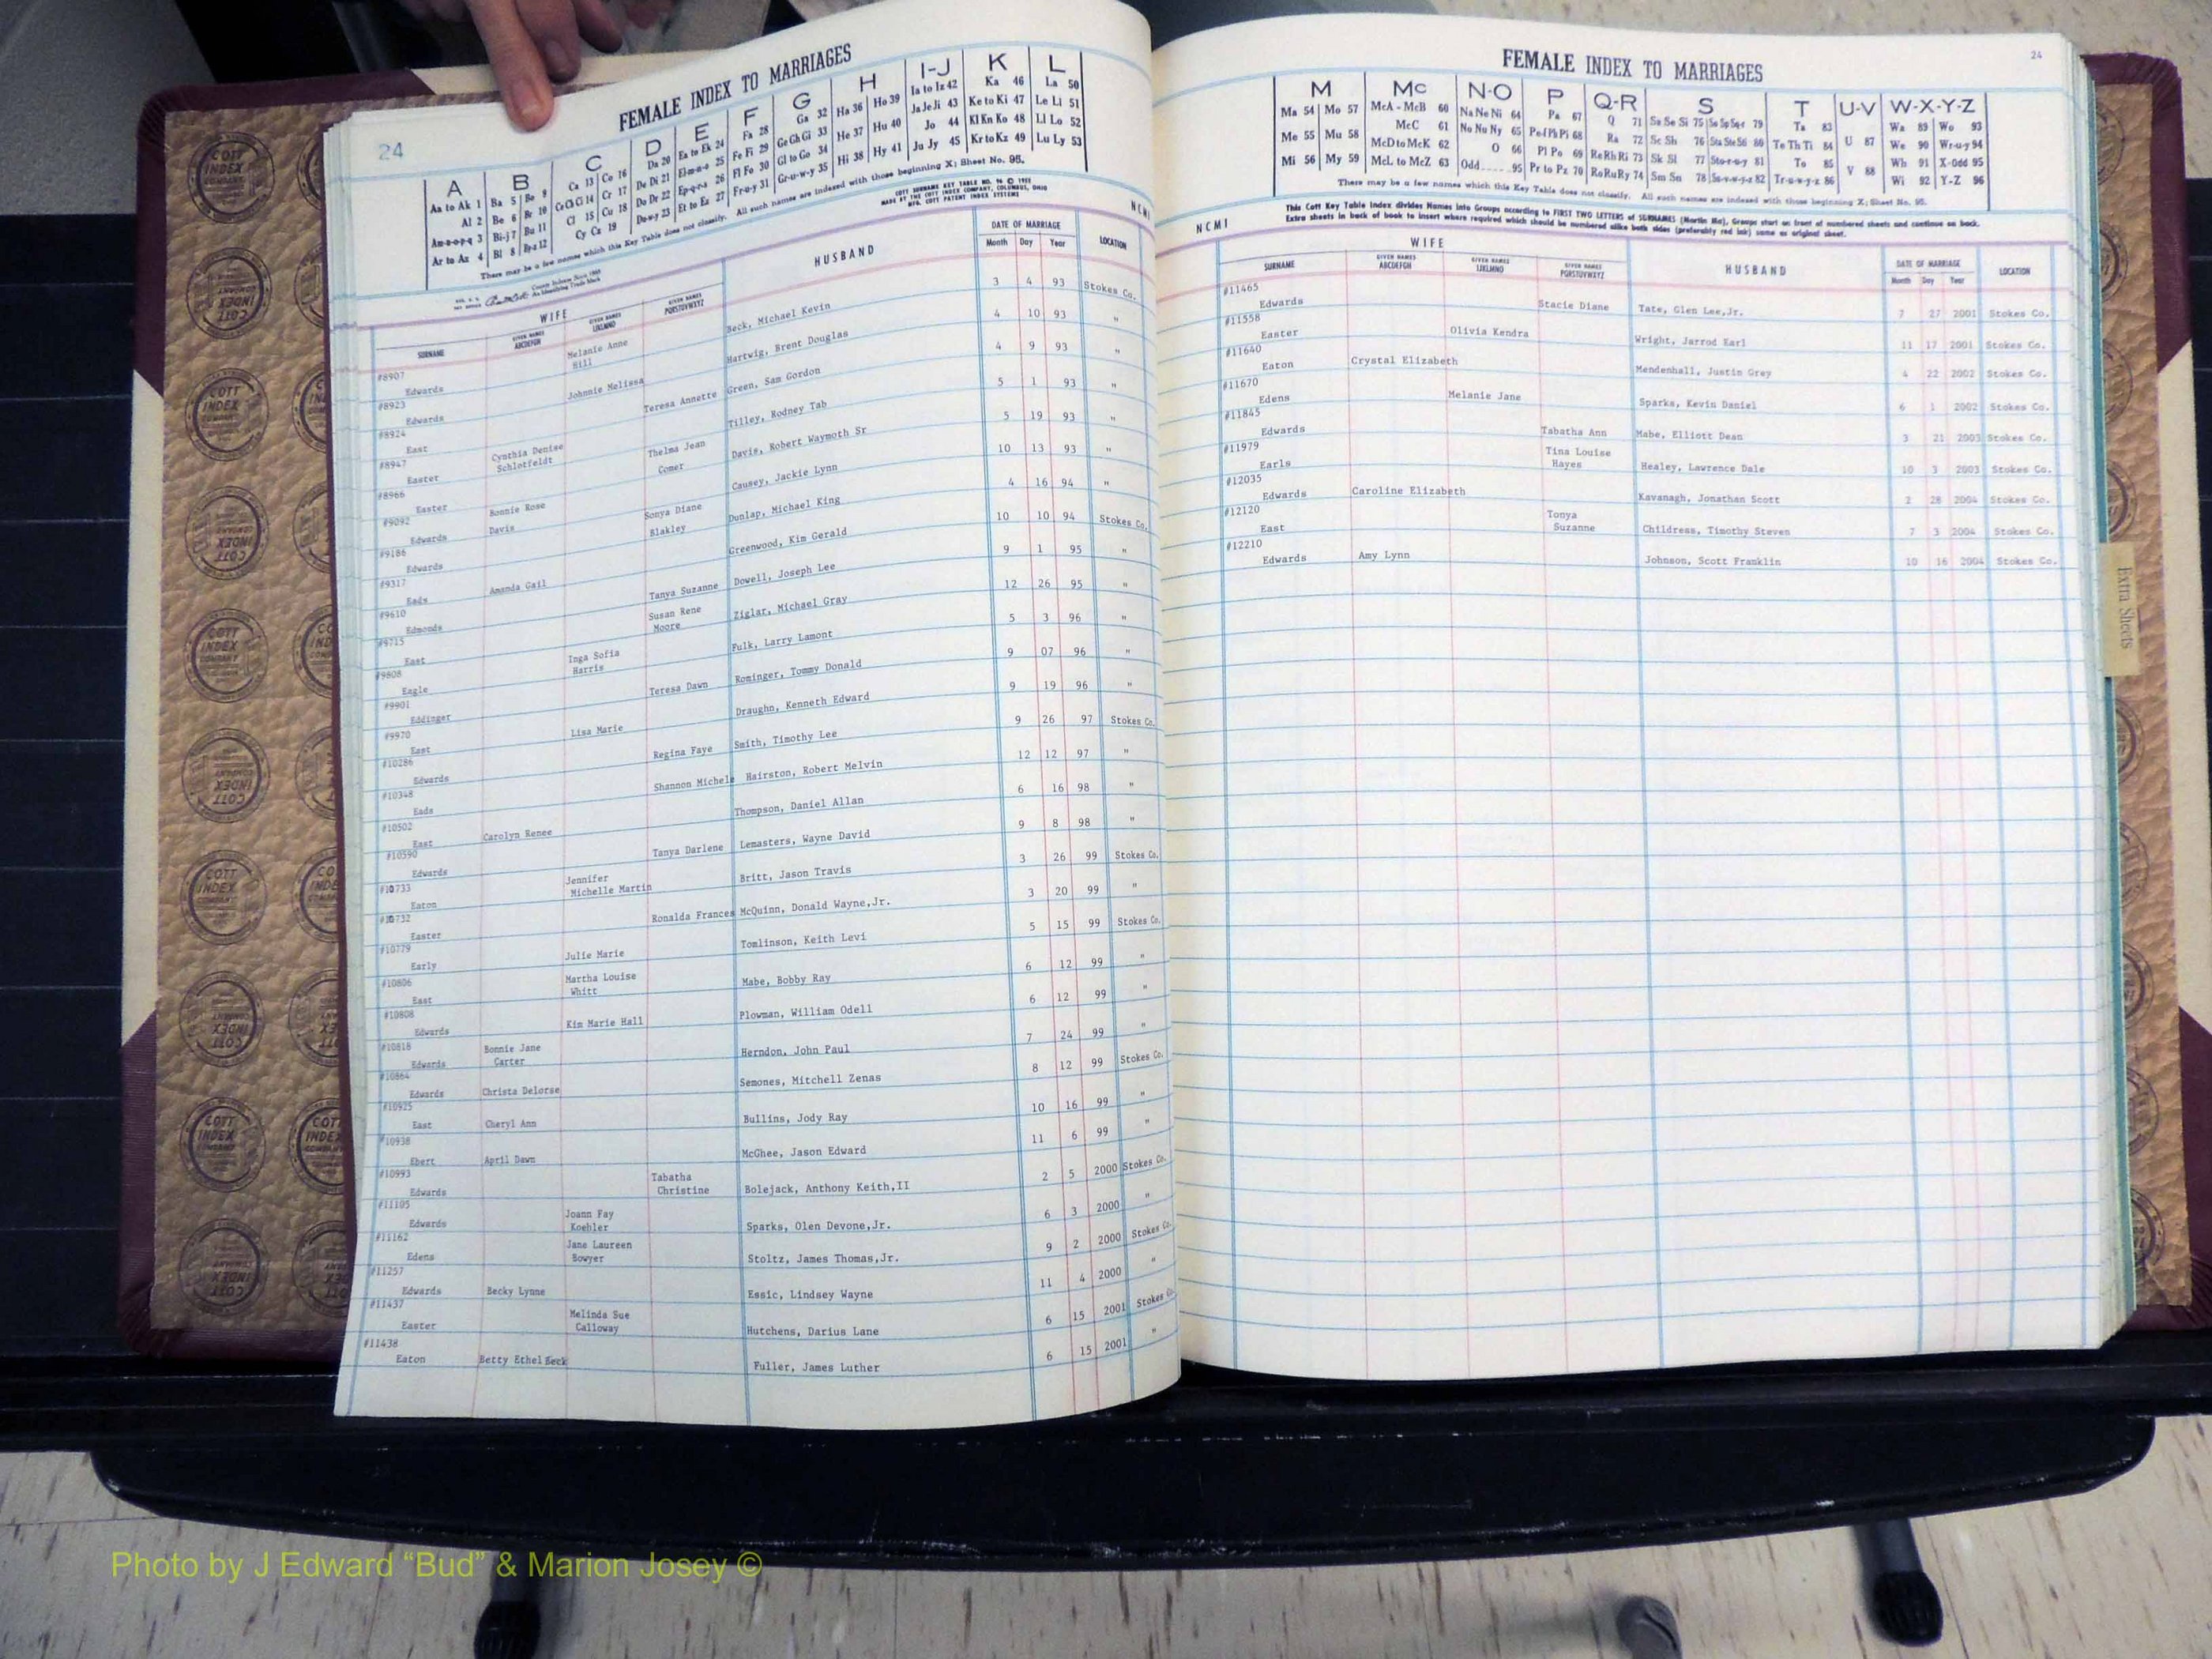 24
FEMALE INDEX TO MARRIAGES
A B C D E F G H I-J K L
Aa to Ak 1 Ba 5 Be 9 Ca 13 Co 16 Da 20 Ea to Ek 24 Fa 28 Ga 32 Ha 36 Ho 39 Ia to Iz 42 Ka 46 La 50
Al 2 Be 6 Br 10 Ce Ch Ci 14 Cr 17 De Di 21 El-m-n-o 25 Fe Fi 29 Ge Gh Gi 33 He 37 Hu 40 Ja Je Ji 43 Ke to Ki 47 Le Li 51
Am-n-o-p-q 3 Bi-j 7 Bu 11 Cl 15 Cu 18 Do Dr 22 Ep-q-r-s 26 Fl Fo 30 Gl to Go 34 Hi 38 Hy 41 Jo 44 Kl Kn Ko 48 Ll Lo 52
Ar to Az 4 Bl 8 By-z 12 Cy Cz 19 Du-w-y 23 Et to Ez 27 Fr-u-y 31 Gr-u-w-y 35 Ju Jy 45 Kr to Kz 49 Lu Ly 53
There may be a few names which this Key Table does not classify. All such names are indexed with those beginning X; Sheet No. 95.
COTT SURNAME KEY TABLE NO. 96 © 1955
MADE BY THE COTT INDEX COMPANY, COLUMBUS, OHIO
MFG. COTT PATENT INDEX SYSTEMS
NCMI
WIFE HUSBAND DATE OF MARRIAGE LOCATION
SURNAME GIVEN NAMES ABCDEFGH GIVEN NAMES IJKLMNO GIVEN NAMES PQRSTUVWXYZ Month Day Year
#8907 Edwards Melanie Anne Hill Beck, Michael Kevin 3 4 93 Stokes Co.
#8923 Edwards Johnnie Melissa Hartwig, Brent Douglas 4 10 93 "
#8924 East Teresa Annette Green, Sam Gordon 4 9 93 "
#8947 Easter Cynthia Denise Schlotfeldt Tilley, Rodney Tab 5 1 93 "
#8966 Easter Bonnie Rose Davis Thelma Jean Comer Davis, Robert Waymoth Sr 5 19 93 "
#9092 Edwards Causey, Jackie Lynn 10 13 93 "
#9186 Edwards Sonya Diane Blakley Dunlap, Michael King 4 16 94 "
#9317 Eads Amanda Gail Greenwood, Kim Gerald 10 10 94 Stokes Co.
#9610 Edmonds Tanya Suzanne Dowell, Joseph Lee 9 1 95 "
#9715 East Susan Rene Moore Ziglar, Michael Gray 12 26 95 "
#9808 Eagle Inga Sofia Harris Fulk, Larry Lamont 5 3 96 "
#9901 Eddinger Teresa Dawn Rominger, Tommy Donald 9 07 96 "
#9970 East Lisa Marie Draughn, Kenneth Edward 9 19 96 "
#10286 Edwards Regina Faye Smith, Timothy Lee 9 26 97 Stokes Co.
#10348 Eads Shannon Michele Hairston, Robert Melvin 12 12 97 "
#10502 East Carolyn Renee Thompson, Daniel Allan 6 16 98 "
#10590 Edwards Tanya Darlene Lemasters, Wayne David 9 8 98 "
#10733 Eaton Jennifer Michelle Martin Britt, Jason Travis 3 26 99 Stokes Co.
#10732 Easter Ronalda Frances McQuinn, Donald Wayne,Jr. 3 20 99 "
#10779 Early Julie Marie Tomlinson, Keith Levi 5 15 99 Stokes Co.
#10806 East Martha Louise Whitt Mabe, Bobby Ray 6 12 99 "
#10808 Edwards Kim Marie Hall Plowman, William Odell 6 12 99 "
#10818 Edwards Bonnie Jane Carter Herndon, John Paul 7 24 99 "
#10864 Edwards Christa Delorse Semones, Mitchell Zenas 8 12 99 Stokes Co.
#10925 East Cheryl Ann Bullins, Jody Ray 10 16 99 "
#10938 Ebert April Dawn McGhee, Jason Edward 11 6 99 "
#10993 Edwards Tabatha Christine Bolejack, Anthony Keith,II 2 5 2000 Stokes Co.
#11105 Edwards Joann Fay Koehler Sparks, Olen Devone,Jr. 6 3 2000 "
#11162 Edens Jane Laureen Bowyer Stoltz, James Thomas,Jr. 9 2 2000 Stokes Co.
#11257 Edwards Becky Lynne Essic, Lindsey Wayne 11 4 2000 "
#11437 Easter Melinda Sue Calloway Hutchens, Darius Lane 6 15 2001 Stokes Co.
#11438 Eaton Betty Ethel Beck Fuller, James Luther 6 15 2001 "
24
FEMALE INDEX TO MARRIAGES
M Mc N-O P Q-R S T U-V W-X-Y-Z
Ma 54 Mo 57 McA - McB 60 Na Ne Ni 64 Pa 67 Q 71 Sa Se Si 75 So Sp Sq-r 79 Ta 83 U 87 Wa 89 Wo 93
Me 55 Mu 58 McC 61 No Nu Ny 65 Pe-f Ph Pi 68 Ra 72 Sc Sh 76 Sta Ste 80 Te Th Ti 84 V 88 We 90 Wr-u-y 94
McD to McK 62 O 66 Pl Po 69 Re Rh Ri 73 Sk Sl 77 Sto-r-u-y 81 To 85 Wh 91 X-Odd 95
Mi 56 My 59 McL to McZ 63 Odd 95 Pr to Pz 70 Ro Ru Ry 74 Sm Sn 78 Su-v-w-y-z 82 Tr-u-w-y-z 86 Wi 92 Y-Z 96
There may be a few names which this Key Table does not classify. All such names are indexed with those beginning X; Sheet No. 95.
This Cott Key Table Index divides Names into Groups according to FIRST TWO LETTERS of SURNAMES (Martin Ma), Groups start on front of numbered sheets and continue on back.
Extra sheets in back of book to insert where required which should be numbered alike both sides (preferably red ink) same as original sheet.
NCMI
WIFE HUSBAND DATE OF MARRIAGE LOCATION
SURNAME GIVEN NAMES ABCDEFGH GIVEN NAMES IJKLMNO GIVEN NAMES PQRSTUVWXYZ Month Day Year
#11465 Edwards Stacie Diane Tate, Glen Lee,Jr. 7 27 2001 Stokes Co.
#11558 Easter Olivia Kendra Wright, Jarrod Earl 11 17 2001 Stokes Co.
#11640 Eaton Crystal Elizabeth Mendenhall, Justin Grey 4 22 2002 Stokes Co.
#11670 Edens Melanie Jane Sparks, Kevin Daniel 6 1 2002 Stokes Co.
#11845 Edwards Tabatha Ann Mabe, Elliott Dean 3 21 2003 Stokes Co.
#11979 Earls Tina Louise Hayes Healey, Lawrence Dale 10 3 2003 Stokes Co.
#12035 Edwards Caroline Elizabeth Kavanagh, Jonathan Scott 2 28 2004 Stokes Co.
#12120 East Tonya Suzanne Childress, Timothy Steven 7 3 2004 Stokes Co.
#12210 Edwards Amy Lynn Johnson, Scott Franklin 10 16 2004 Stokes Co.
Extra Sheets
COTT INDEX COMPANY
Photo by J Edward “Bud” & Marion Josey ©